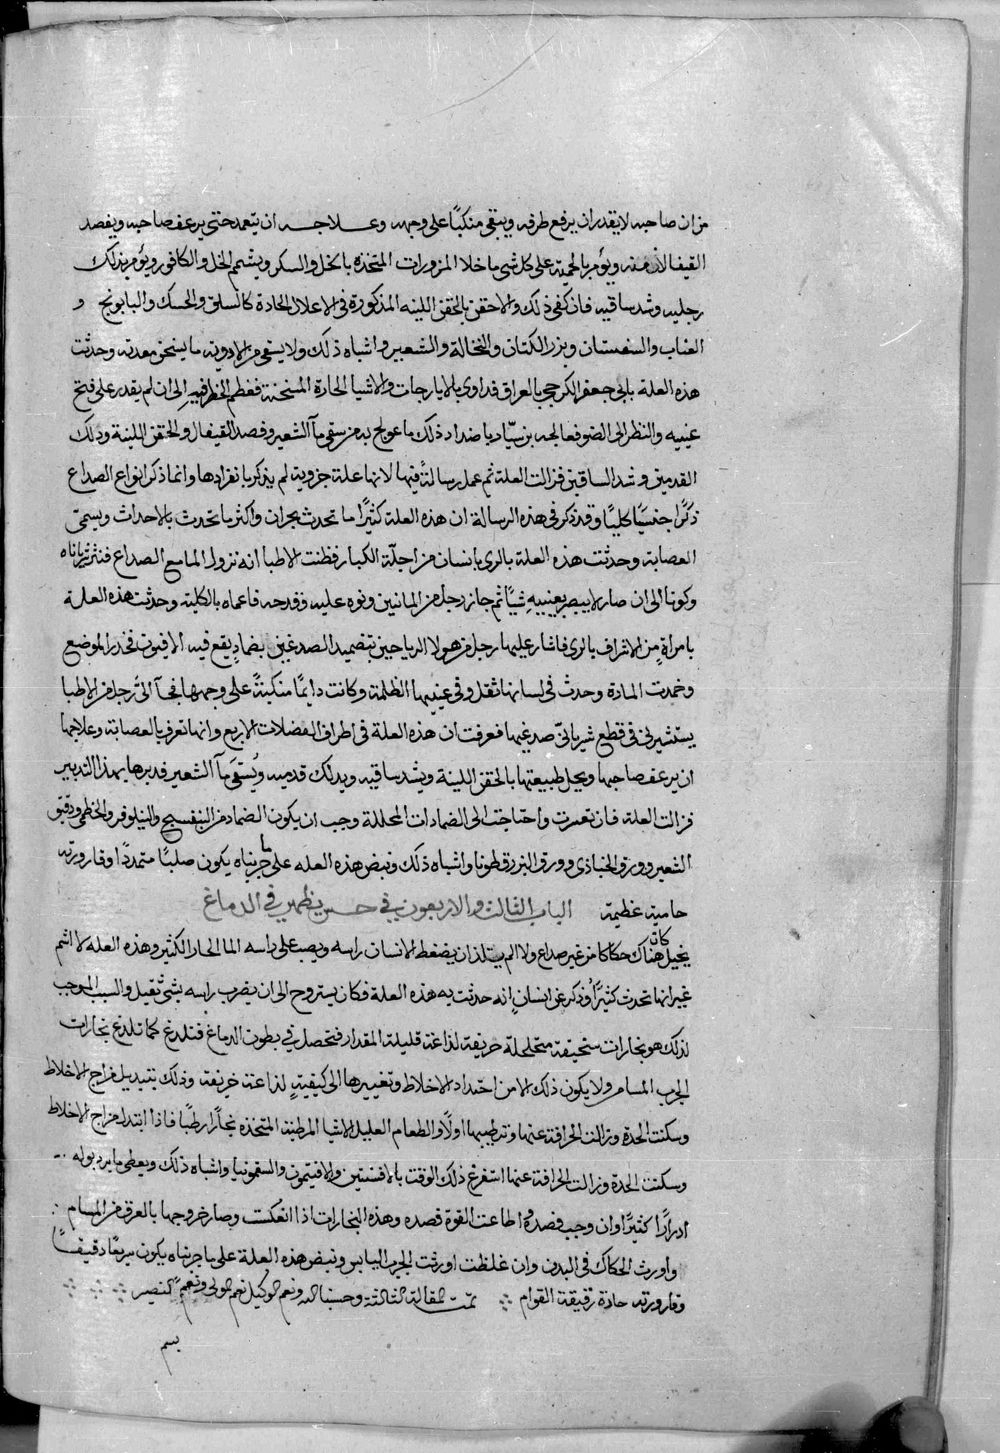 من ان صاحبه لا يقدر ان يرفع طرفه ويبقى منكبًا على وجهه وعلاجه ان يتعمد حتى يرعف صاحبه ويفصد
القيفال لا منه ويؤمر بالحمية على كل شي ما خلا المزورات المتخذه بالخل والسكر ويشمم الخل والكافور ويؤمر بدلك
رجليه وشد ساقيه فان كفى ذلك والا حقن بالحقن اللينه المذكورة في الاعلال الحادة كالسلق والحسك والبابونج و
العناب والسفستان وبزر الكتان والنخالة والشعير واشباه ذلك ولا يسقى من الادوية ما يسخن معدته وحدثت
هذه العلة بابي جعفر الكرجي بالعراق فداوى بالايارجات والاشيا الحارة المسخنة فعظم الخطر فيه الى ان لم يقدر على فتح
عينيه والنظر الى الضو فعالجه بن سيّار باضداد ذلك ما عولج به من سقي مآ الشعير وفصد القيفال والحقن اللينة ودلك
القدمين وشد الساقين فزالت العلة ثم عمل رسالةً فيها لانها علة جزوية لم يذكر بانفرادها وانما ذكر انواع الصداع
ذكرًا جنسيًا كليًا وقد ذكر في هذه الرسالة ان هذه العلة كثيرًا ما تحدث ببحران واكثر ما تحدث بالاحداث ويسمى
العصابة وحدثت هذه العلة بالري بانسان من اجلّة الكبار فظنت الاطبا انه نزول الما مع الصداع فنثر شريانه
وكويا الى ان صار لا يبصر بعينيه شيًا ثم جاز رجل من المانين ونوه عليه وقدحه فاعماه بالكلية وحدثت هذه العلة
بامراةٍ من الاشراف بالري فاشار عليها رجل من هولا الرياحين بتضميد الصدغين بضمادٍ يقع فيه الافيون فخدر الموضع
وخمدت المادة وحدث في لسانها ثقل وفي عينيها الظلمة وكانت دايمًا منكبةً على وجهها فجآ الىّ رجل من الاطبا
يستشيرني في قطع شرياني صدغيها فعرفت ان هذه العلة في اطراف العضلات الاربع وانها تعرف بالعصابة وعلاجها
ان يرعف صاحبها ويحل طبيعتها بالحقن اللينة ويشد ساقيه ويدلك قدميه ويُسقى مآ الشعير فدبرها بهذا التدبير
فزالت العلة فان تعسرت واحتاجت الى الضمادات المحللة وجب ان يكون الضماد من البنفسج والنيلوفر والخطمي ودقيق
الشعير وورق الخبازى وورق البزرقطونا واشباه ذلك ونبض هذه العله على ما جربناه يكون صلبًا متمددًا وقارورته
حامية عظيمة الباب الثالث والاربعون في حس يظهر في الدماغ
يخيل كان هناك حكاكا من غير صداع ولا الم يستلذ ان يضغط الانسان راسه ويصب على راسه الما الحار الكثير وهذه العله لا اسم
غير انها تحدث كثيرًا وذكر عن انسانٍ انه حدثت به هذه العلة فكان يستروح الى ان يضرب راسه بشي ثقيل والسبب الموجب
لذلك هو بخارات سخيفة متخلخلة حريفة لذاعة قليلة المقدار فتحصل في بطون الدماغ فتلدغ كما تلدغ بخارات
الجرب المسام ولا يكون ذلك الا من احتداد الاخلاط وتغييرها الى كيفيةٍ لذاعة حريفة وذلك بتبديل مزاج الاخلاط
وسكنت الحدة وزالت الحرافة عنها وترطيبها اولًا والطعام العليل الاشيا المرطبة المتخذه بخارًا رطبًا فاذا ابتدل مزاج الاخلاط
وسكنت الحدة وزالت الحرافة عنها استفرغ ذلك الوقت بالافسنتين والافيتمون والسقمونيا واشباه ذلك ويعطى ما يرد بوله
ادرارًا كثيرًا وان وجب فصده واطاعت القوة فصده وهذه البخارات اذا انعكست وصار خروجها بالعرق من المسام
واورث الحكاك في البدن وان غلظت اورثت الجرب اليابس ونبض هذه العلة على ما جربناه يكون سريعًا دقيقًا
وقارورته حادة رقيقة القوام تمت المقالة الثالثة وحسبنا الله ونعم الوكيل نعم المولى ونعم النصير
بسم